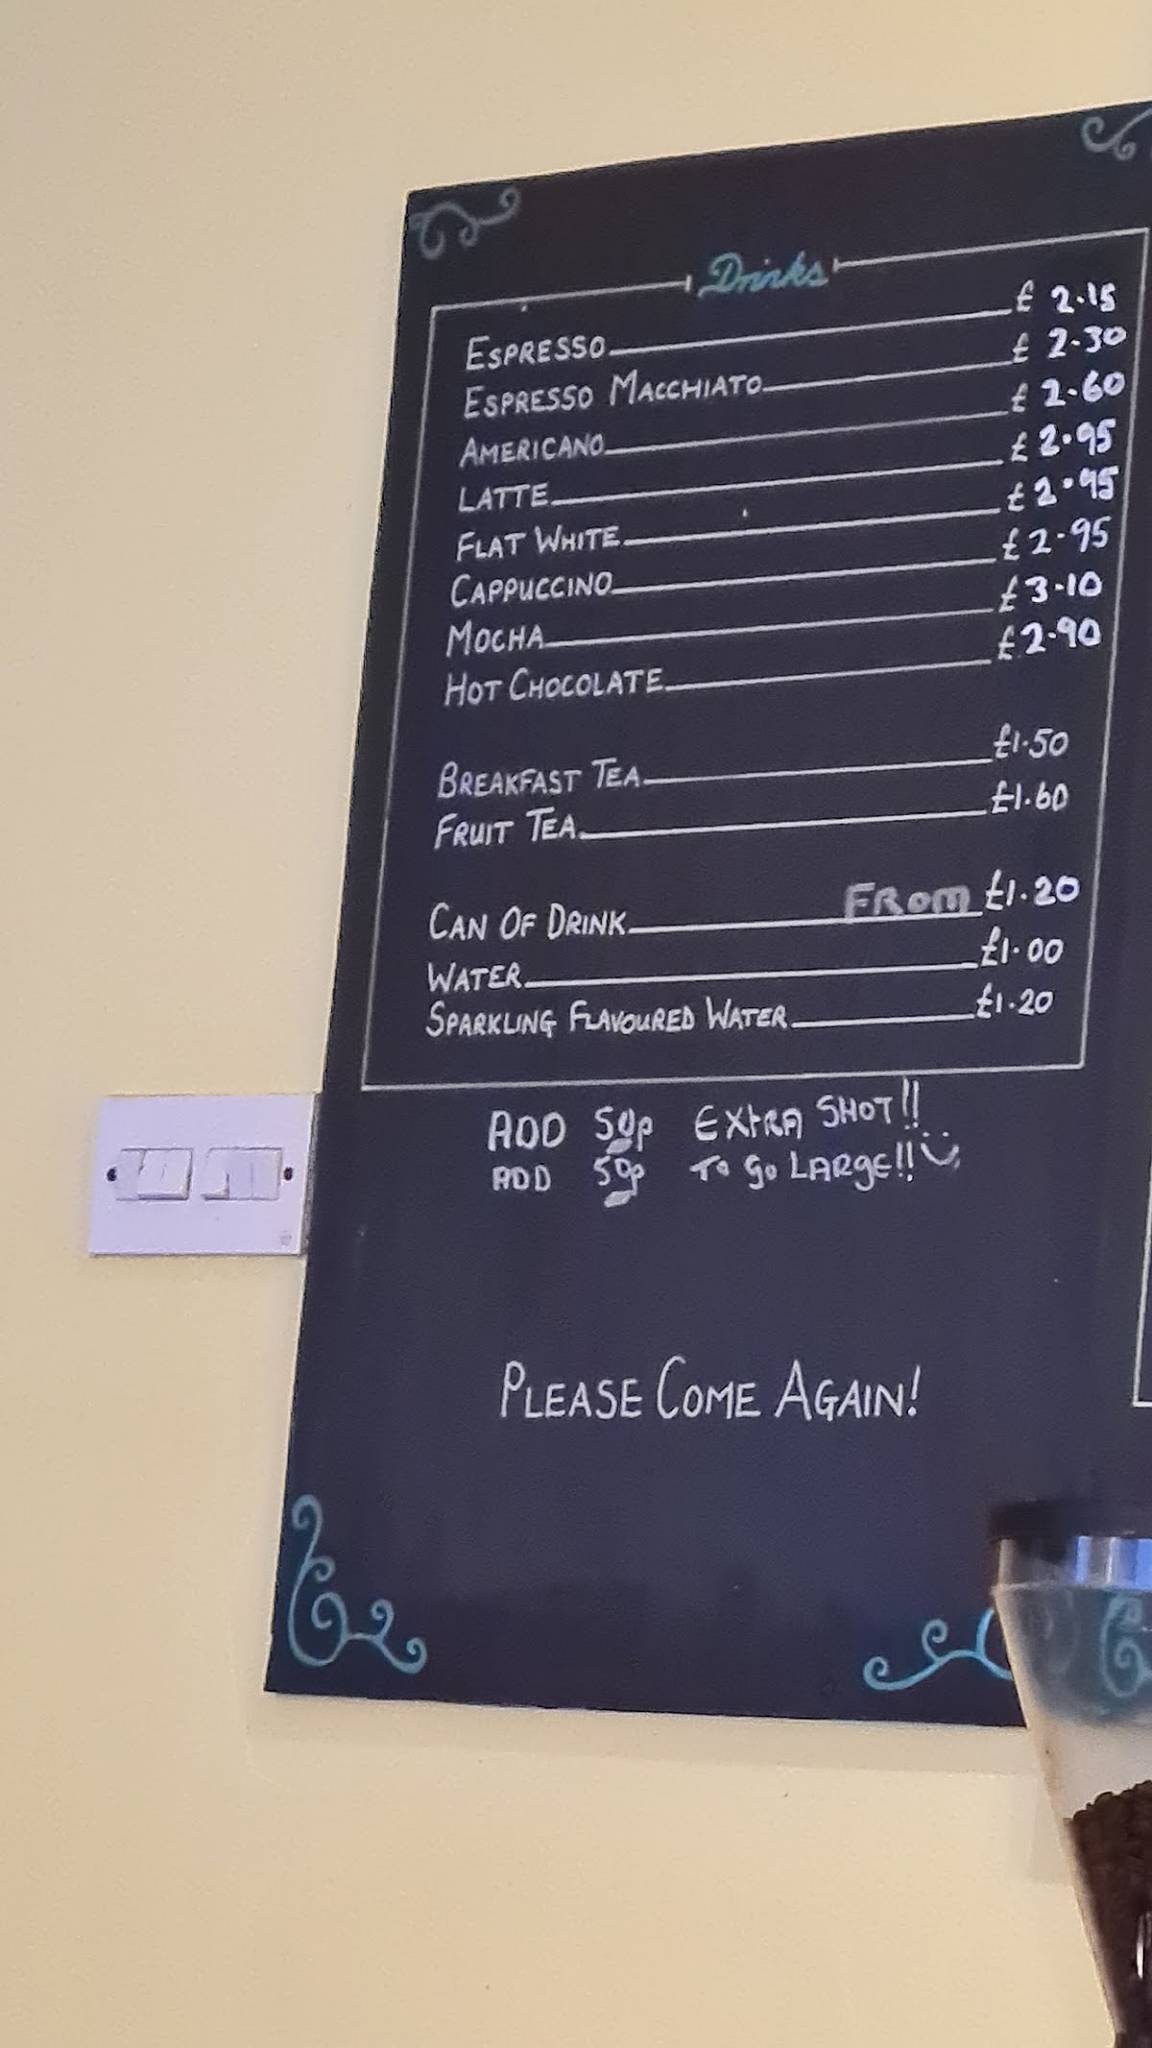 Drinks
ESPRESSO £ 2.15
ESPRESSO MACCHIATO £ 2.30
AMERICANO £ 2.60
LATTE £ 2.95
FLAT WHITE £ 2.95
CAPPUCCINO £ 2.95
MOCHA £ 3.10
HOT CHOCOLATE £ 2.90
BREAKFAST TEA £1.50
FRUIT TEA £1.60
CAN OF DRINK FROM £1.20
WATER £1.00
SPARKLING FLAVOURED WATER £1.20
ADD 50p EXTRA SHOT!!
ADD 50p TO GO LARGE!!
PLEASE COME AGAIN!